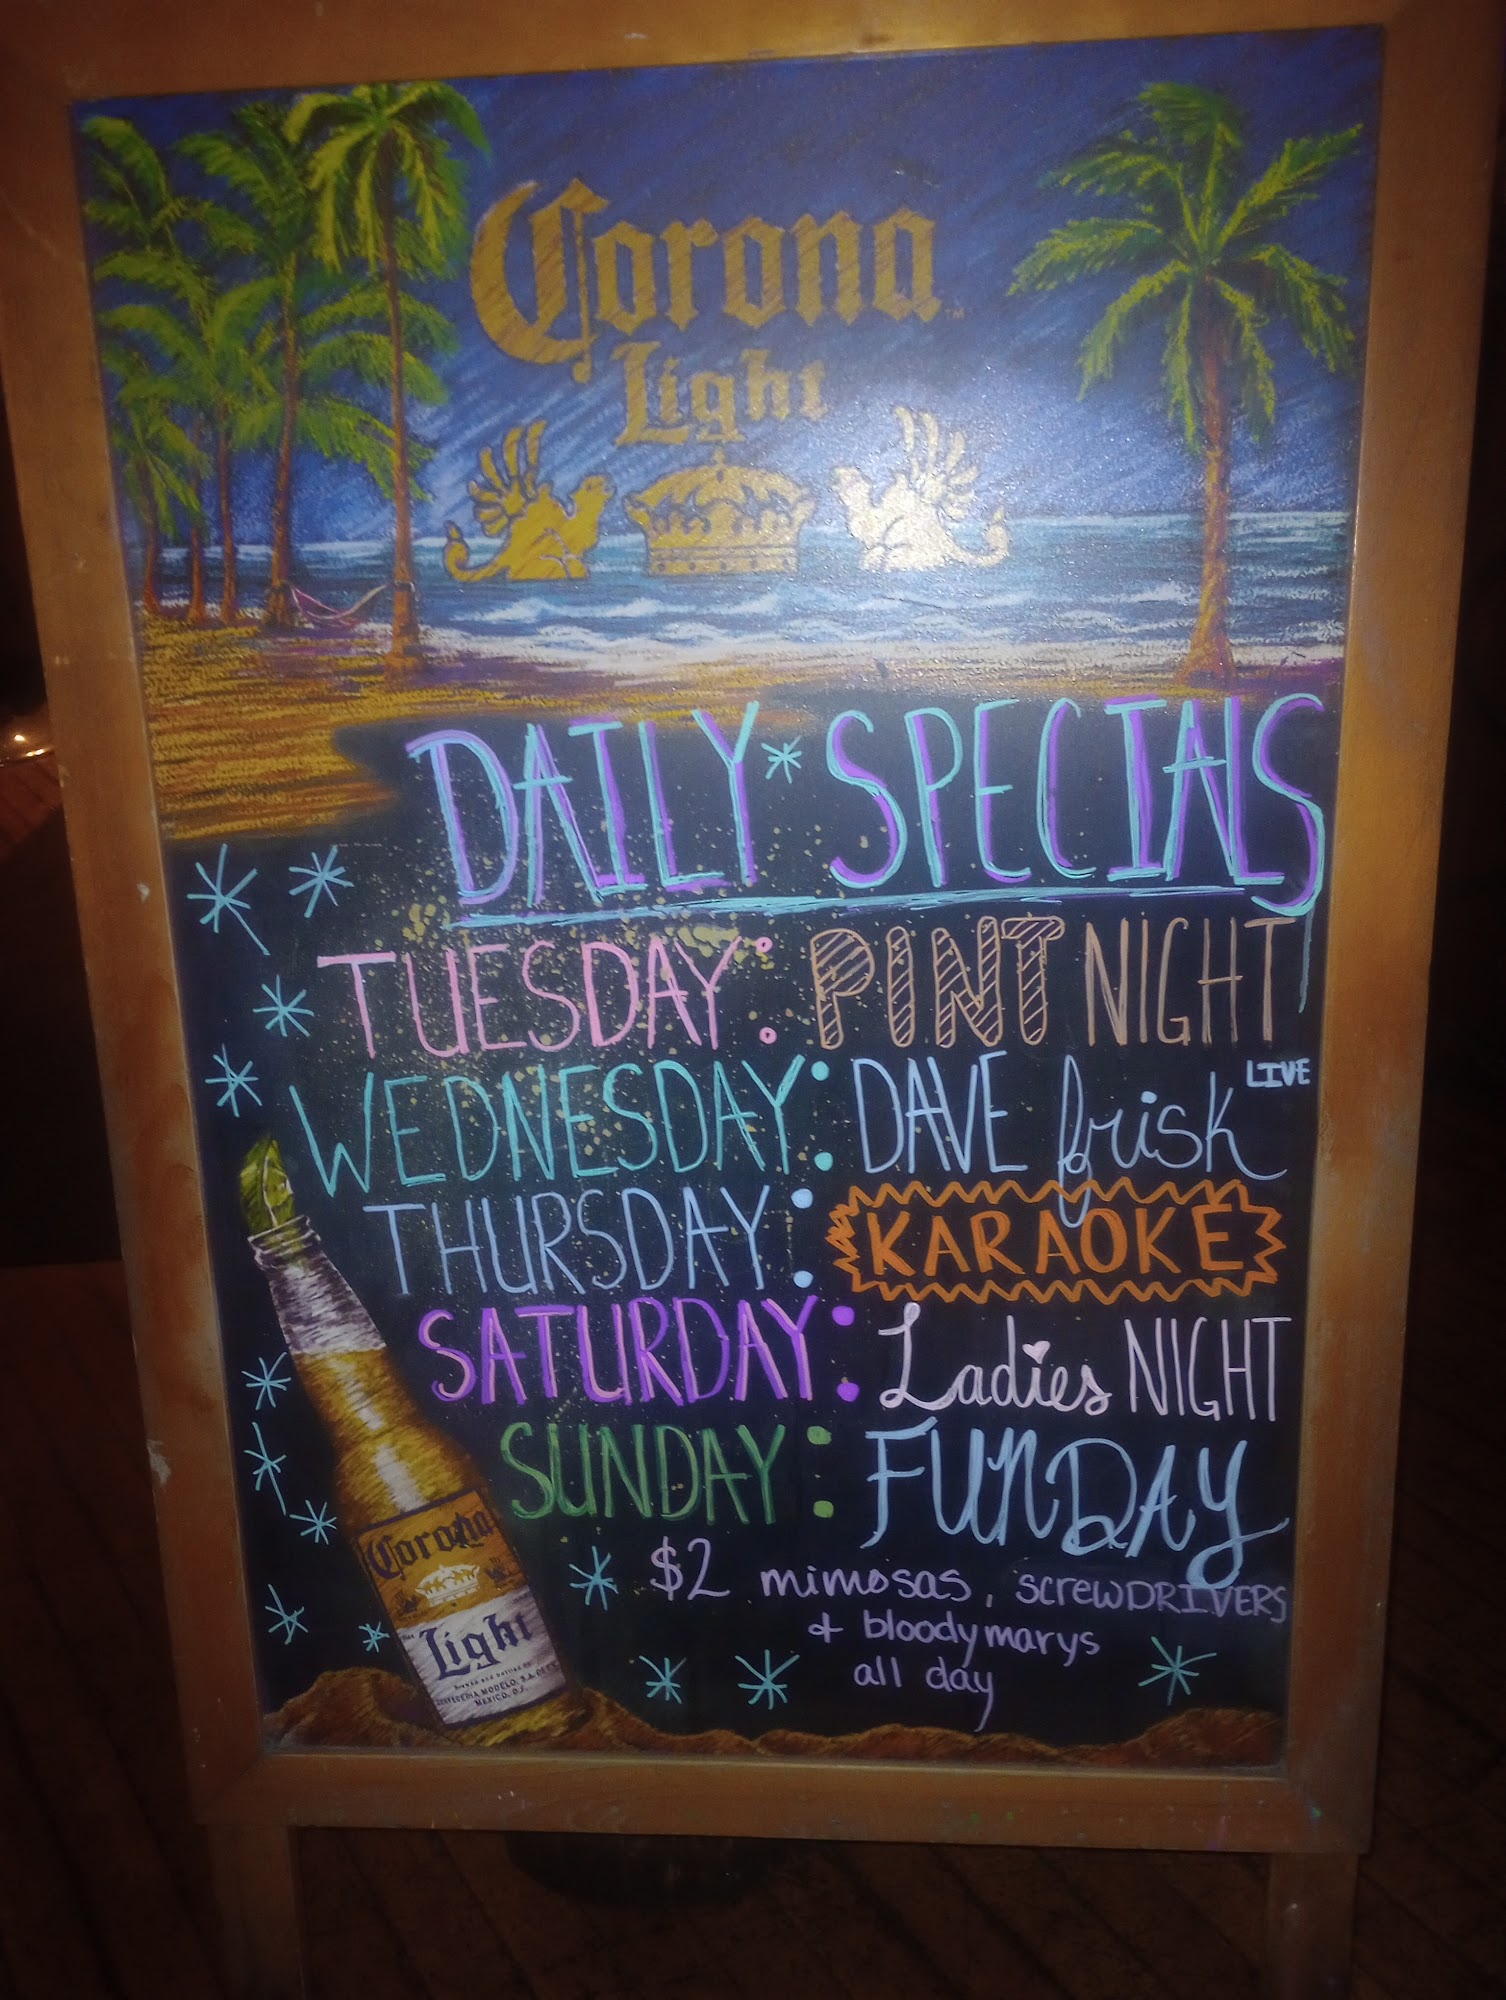 Corona TM
Light
DAILY * SPECIALS
TUESDAY: PINT NIGHT
WEDNESDAY: DAVE frisk LIVE
THURSDAY: KARAOKE
SATURDAY: Ladies NIGHT
SUNDAY: FUNDAY
$2 mimosas, SCREWDRIVERS
+ bloodymarys
all day
Corona
Light
BREWED AND BOTTLED BY
CERVECERIA MODELO, S.A. DE C.V.
MEXICO, D.F.